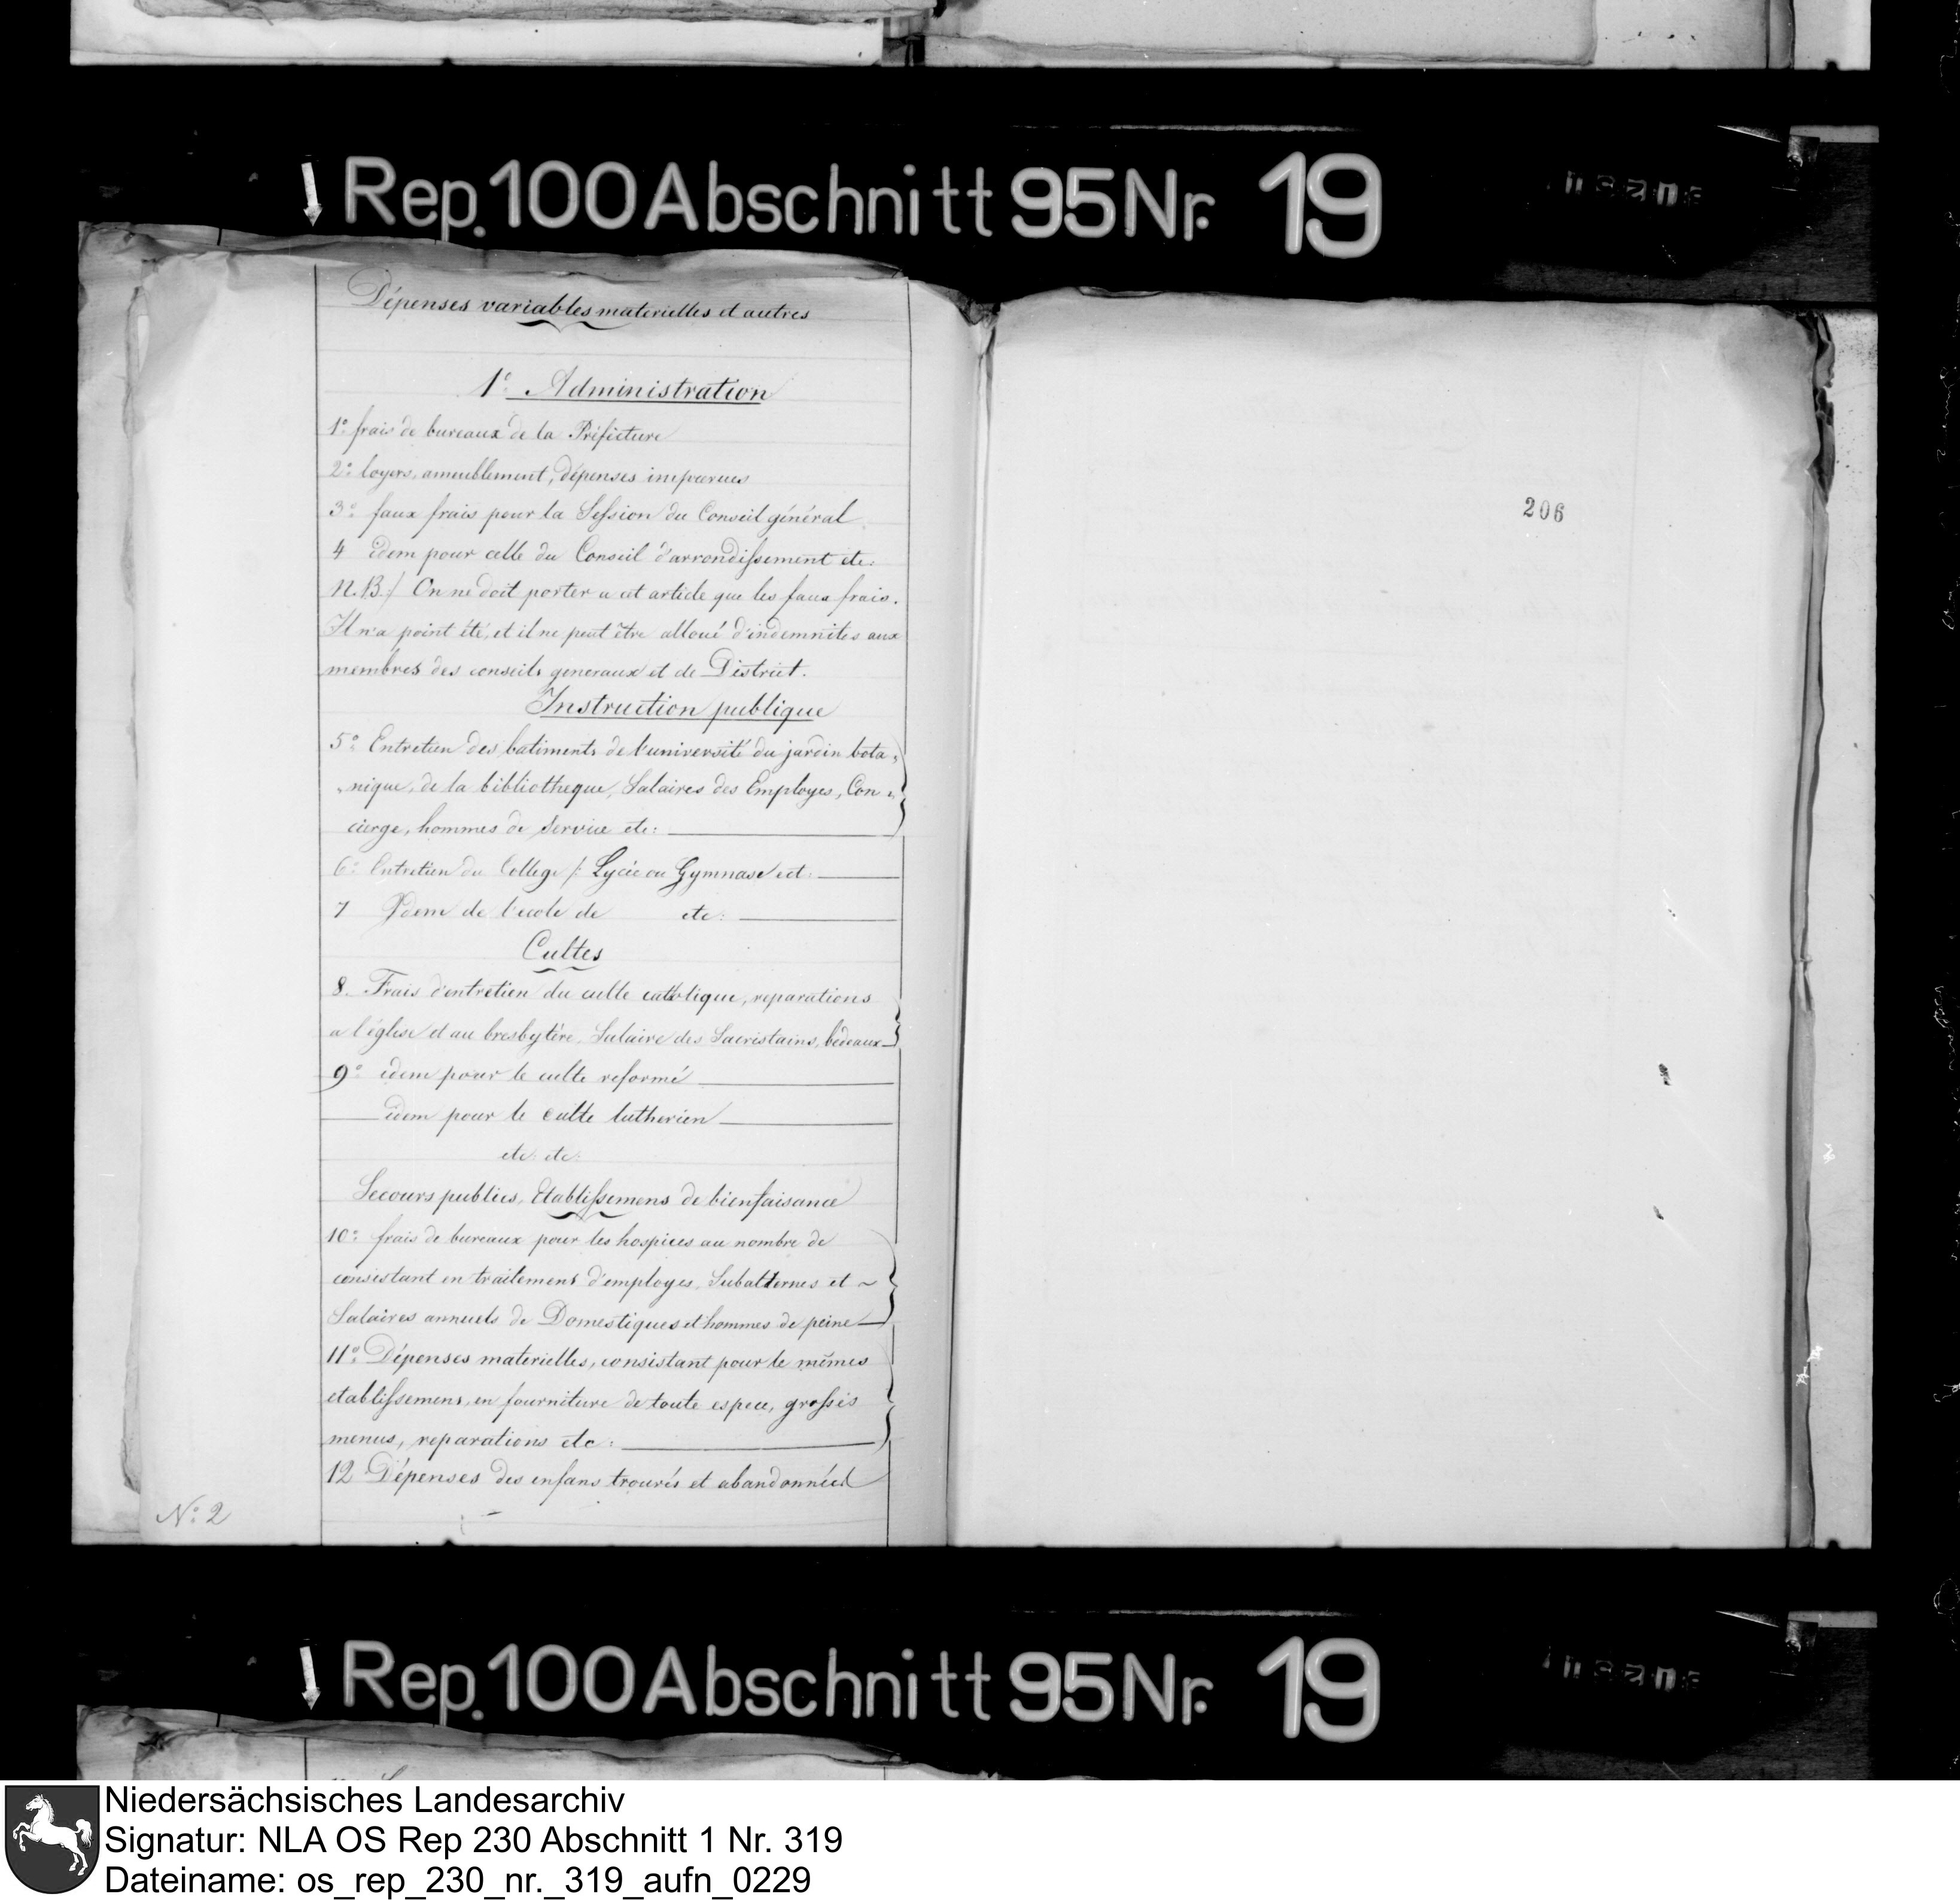 Rep. 100 Abschnitt 95 Nr. 19
Dépenses variables materielles et autres
1° Administration
1° frais de bureaux de la Préfecture
2° loyers, ameublement, dépenses imprevues
3° faux frais pour la Session du Conseil général
4 idem pour celle du Conseil d'arrondissement etc:
N.B./ On ne doit porter a cet article que les faux frais.
Il n'a point été, et il ne peut être alloué d'indemnites aux
membres des conseils generaux et de District.
Instruction publique
5° Entretien des batiments de l'université du jardin bota
nique, de la bibliotheque, Salaires des Employes, Con
cierge, hommes de Service etc:
6° Entretien du College /: Lycée ou Gymnase ect:
7 Idem de l'ecole de etc:
Cultes
8. Frais d'entretien du culte catholique, reparations
a l'église et au bresbytère, Salaire des Sacristains, bedeaux
9° idem pour le culte reformé
idem pour le culte lutherien
etc: etc:
Secours publics, Etablissemens de bienfaisance
10° frais de bureaux pour les hospices au nombre de
consistant en traitemens d'employes, Subalternes et ~
Salaires annuels de Domestiques et hommes de peine
11° Dépenses materielles, consistant pour le mêmes
etablissemens, en fourniture de toute espece, grosses
menus, reparations etc:
12 Dépenses des enfans trouvés et abandonnées
N° 2
206
Rep. 100 Abschnitt 95 Nr. 19
Niedersächsisches Landesarchiv
Signatur: NLA OS Rep 230 Abschnitt 1 Nr. 319
Dateiname: os_rep_230_nr._319_aufn_0229